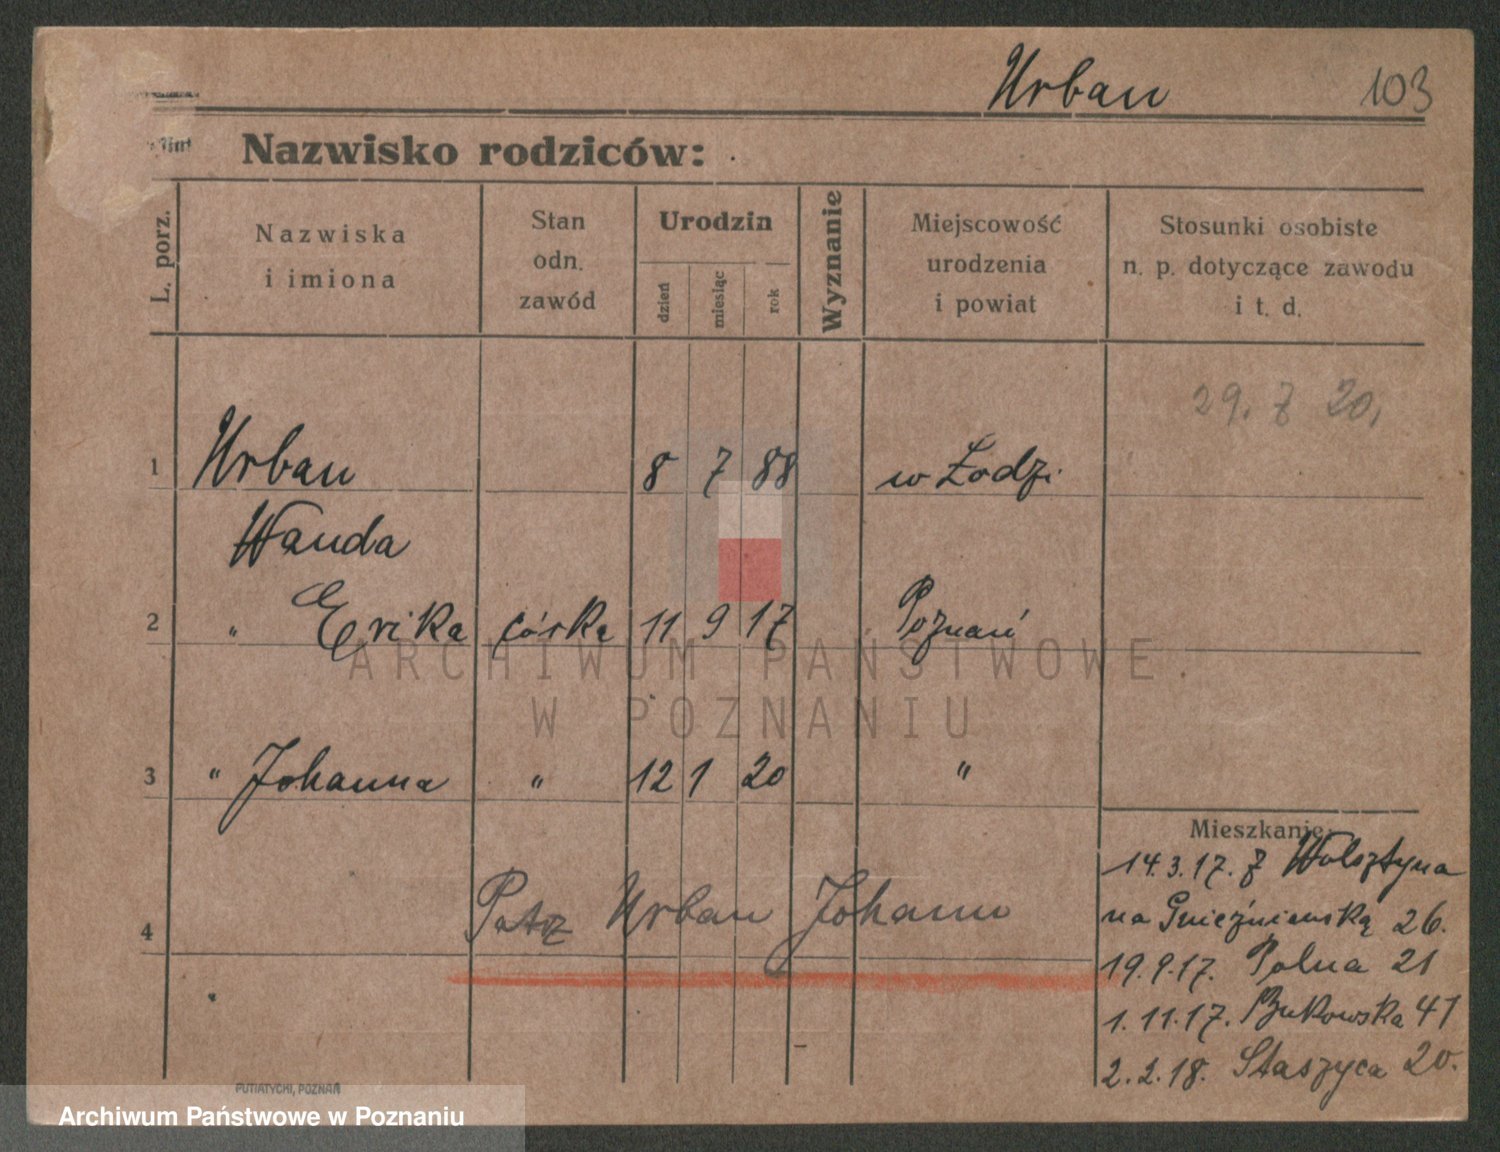 Urban 103
Nazwisko rodziców:
L. porz.
Nazwiska
i imiona
Stan
odn.
zawód
Urodzin
dzień
miesiąc
rok
Wyznanie
Miejscowość
urodzenia
i powiat
Stosunki osobiste
n. p. dotyczące zawodu
i t. d.
29. 7 20,
1 Urban 8 7 88 w Łodzi
Wanda
2 " Erika córka 11 9 17 Poznań
ARCHIWUM PAŃSTWOWE
W POZNANIU
3 " Johanna " 12 1 20 "
4 Patz Urban Johann
Mieszkanie:
14.3.17. z Wolsztyna
na Gnieźnieńską 26.
19.9.17. Polna 21
1.11.17. Bukowska 41
2.2.18. Staszyca 20.
PUTIATYCKI, POZNAŃ
Archiwum Państwowe w Poznaniu